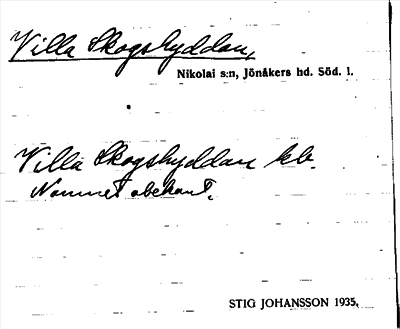 Villa Skogshyddan,
Nikolai s:n, Jönåkers hd. Söd. l.
Villa Skogshyddan kb.
Namnet obekant.
STIG JOHANSSON 1935.